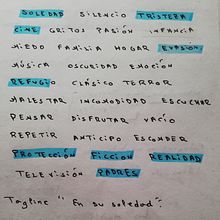 SOLEDAD SILENCIO TRISTEZA
CINE GRITOS PASIÓN INFANCIA
MIEDO FAMILIA HOGAR EVASIÓN
MÚSICA OSCURIDAD EMOCIÓN
REFUGIO CLÁSICO TERROR
MALESTAR INCOMODIDAD ESCUCHAR
PENSAR DISFRUTAR VACÍO
REPETIR ANTICIPO ESCONDER
PROTECCIÓN FICCION REALIDAD
TELEVISIÓN PADRES
Tagline "En su soledad".